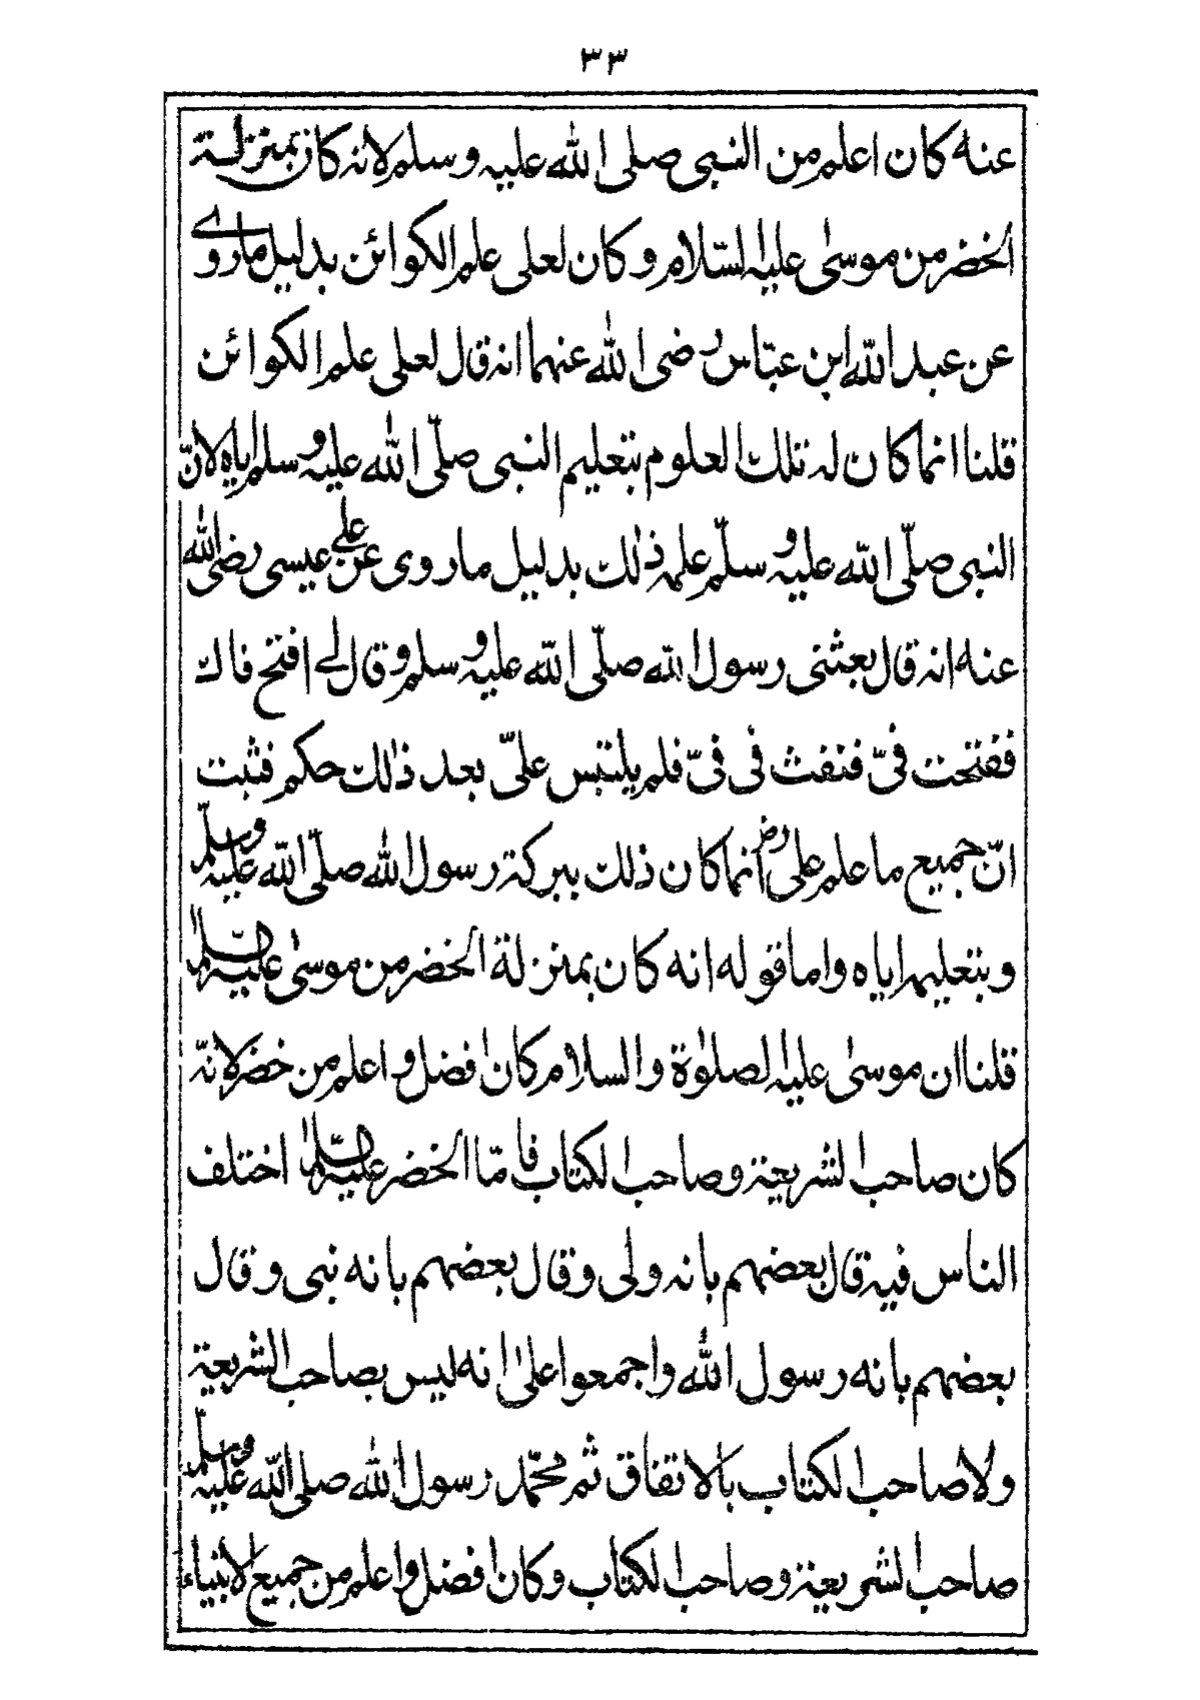 ٣٣
عنه كان اعلم من النبى صلى الله عليه وسلم لانه كان بمنزلة
الخضر من موسىٰ عليه السّلام وكان لعلى علم الكوائن بدليل ماروے
عن عبد الله ابن عبّاس رضى الله عنهما انه قال لعلى علم الكوائن
قلنا انما كان له تلك العلوم بتعليم النبى صلّى الله عليه وسلم اياه لانّ
النبى صلّى الله عليه وسلّم علمه ذٰلك بدليل ماروى عن على عيسى رضى الله
عنه انه قال بعثنى رسول الله صلّى الله عليه وسلم وقال لے افتح فاك
ففتحت فىّ فنفث فى فىّ فلم يلتبس علىّ بعد ذٰلك حكم فثبت
انّ جميع ما علم على رض انما كان ذلك ببركة رسول الله صلّى الله عليه وسلّم
وبتعليم اياه واما قوله انه كان بمنزلة الخضر من موسىٰ عليه السّلام
قلنا ان موسىٰ عليه الصلوٰة والسلام كان افضل و اعلم من خضر لانّه
كان صاحب الشريعة وصاحب الكتاب فامّا الخضر عليه السّلام اختلف
الناس فيه قال بعضهم بانه ولى وقال بعضهم بانه نبى وقال
بعضهم بانه رسول الله واجمعوا علىٰ انه ليس بصاحب الشريعة
ولا صاحب الكتاب بالاتفاق ثم محمّد رسول الله صلى الله عليه وسلّم
صاحب الشريعة وصاحب الكتاب وكان افضل واعلم من جميع الانبياء